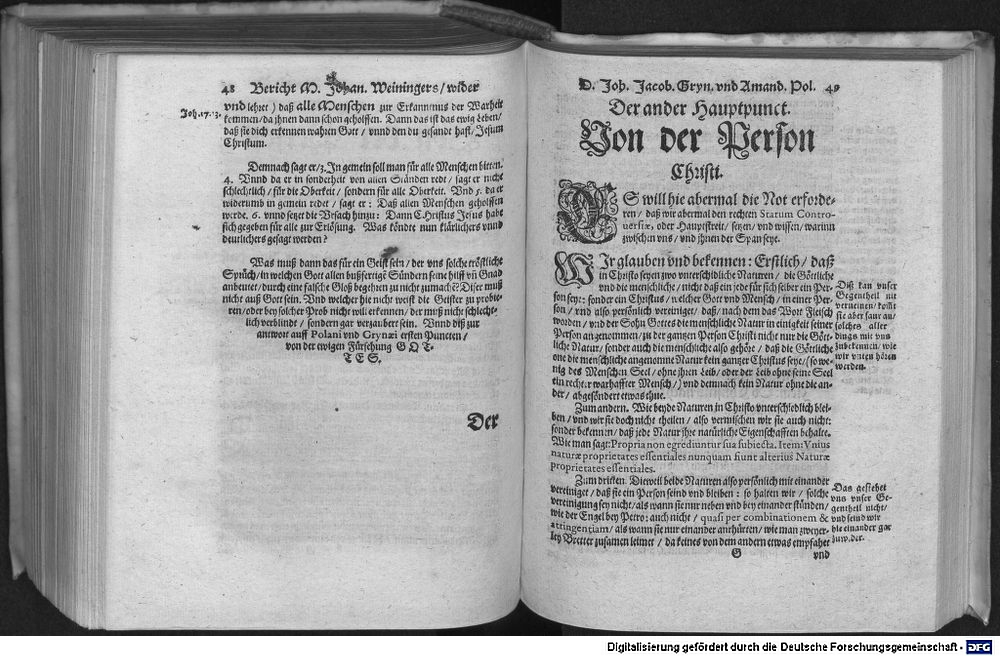 48 Bericht M. Johan. Weiningers / wider
vnd lehret ) daß alle Menschen zur Erkanntnus der Warheit
kommen / da ihnen dann schon geholffen. Dann das ist das ewig Leben /
Joh. 17. 13.
daß sie dich erkennen wahren Gott / vnnd den du gesandt hast / Jesum
Christum.
Demnach sagt er / 3. In gemein soll man für alle Menschen bitten.
4. Vnnd da er in sonderheit von allen Ständen redt / sagt er nicht
schlechtlich / für die Oberkeit / sondern für alle Oberkeit. Vnd 5. da er
widerumb in gemein redet / sagt er : Daß allen Menschen geholffen
werde. 6. vnnd setzt die Vrsach hinzu : Dann Christus Jesus hab
sich gegeben für alle zur Erlösung. Was köndte nun klärlichers vnnd
deutlichers gesagt werden ?
Was muß dann das für ein Geist sein / der vns solche tröstliche
Sprüch / in welchen Gott allen bußfertigē Sündern seine hilff vñ Gnad
anbeutet / durch eine falsche Gloß begehren zu nicht zumachē? Diser muß
nicht auß Gott sein. Vnd welcher hie nicht weist die Geister zu probie-
ren / oder bey solcher Prob nicht will erkennen / der muß nicht schlecht-
lich verblindt / sondern gar verzaubert sein. Vnnd diß zur
antwort auff Polani vnd Grynæi ersten Puncten /
von der ewigen Fürsehung GOT-
TES.
Der
D. Joh. Jacob. Gryn. vnd Amand. Pol. 49
Der ander Hauptpunct.
Von der Person
Christi.
ES will hie abermal die Not erforde-
ren / daß wir abermal den rechten Statum Contro-
versiæ, oder Hauptstreit / setzen / vnd wissen / warinn
zwischen vns / vnd ihnen der Span seye.
WIr glauben vnd bekennen : Erstlich / daß
in Christo seyen zwo vnterschidliche Naturen / die Göttliche
vnd die menschliche / nicht daß ein jede für sich selber ein Per-
son sey : sonder ein Christus / welcher Gott vnd Mensch / in einer Per-
son / vnd also persönlich vereiniget / daß / nach dem das Wort Fleisch
worden / vnd der Sohn Gottes die menschliche Natur in einigkeit seiner
Person angenommen / zu der gantzen Person Christi nicht nur die Gött-
liche Natur / sonder auch die menschliche also gehöre / daß die Göttliche
one die menschliche angenomne Natur kein gantzer Christus seye / ( so we-
nig des Menschen Seel / ohne ihren Leib / oder der Leib ohne seine Seel
ein rechter warhaffter Mensch / ) vnd demnach kein Natur ohne die an-
der / abgesöndert etwas thue.
Diß kan vnser
Gegentheil nit
verneinen / kōmt
sie aber saur an /
solches aller
dings mit vns
zubekennen / wie
wir vnten hören
werden.
Zum andern. Wie beyde Naturen in Christo vnterschiedlich blei-
ben / vnd wir sie doch nicht theilen / also vermischen wir sie auch nicht :
sonder bekennen / daß jede Natur ihre natürliche Eigenschafften behalte.
Wie man sagt : Propria non egrediuntur sua subiecta. Item: Vnius
naturæ proprietates essentiales nunquam fiunt alterius Naturæ
proprietates essentiales.
Zum dritten. Dieweil beide Naturen also persönlich mit einander
vereiniget / daß sie ein Person seind vnd bleiben : so halten wir / solche
vereinigung sey nicht / als wann sie nur neben vnd bey einander stünden /
wie der Engel bey Petro : auch nicht / quasi per combinationem &
attingentiam / als wann sie nur einander anrhürten / wie man zweyer-
ley Bretter zusamen leimet / da keines von dem andern etwas empfahet
Das gestehet
vns vnser Ge-
gentheil nicht /
vnd seind wir
hie einander gar
zuwider.
G vnd
Digitalisierung gefördert durch die Deutsche Forschungsgemeinschaft - DFG